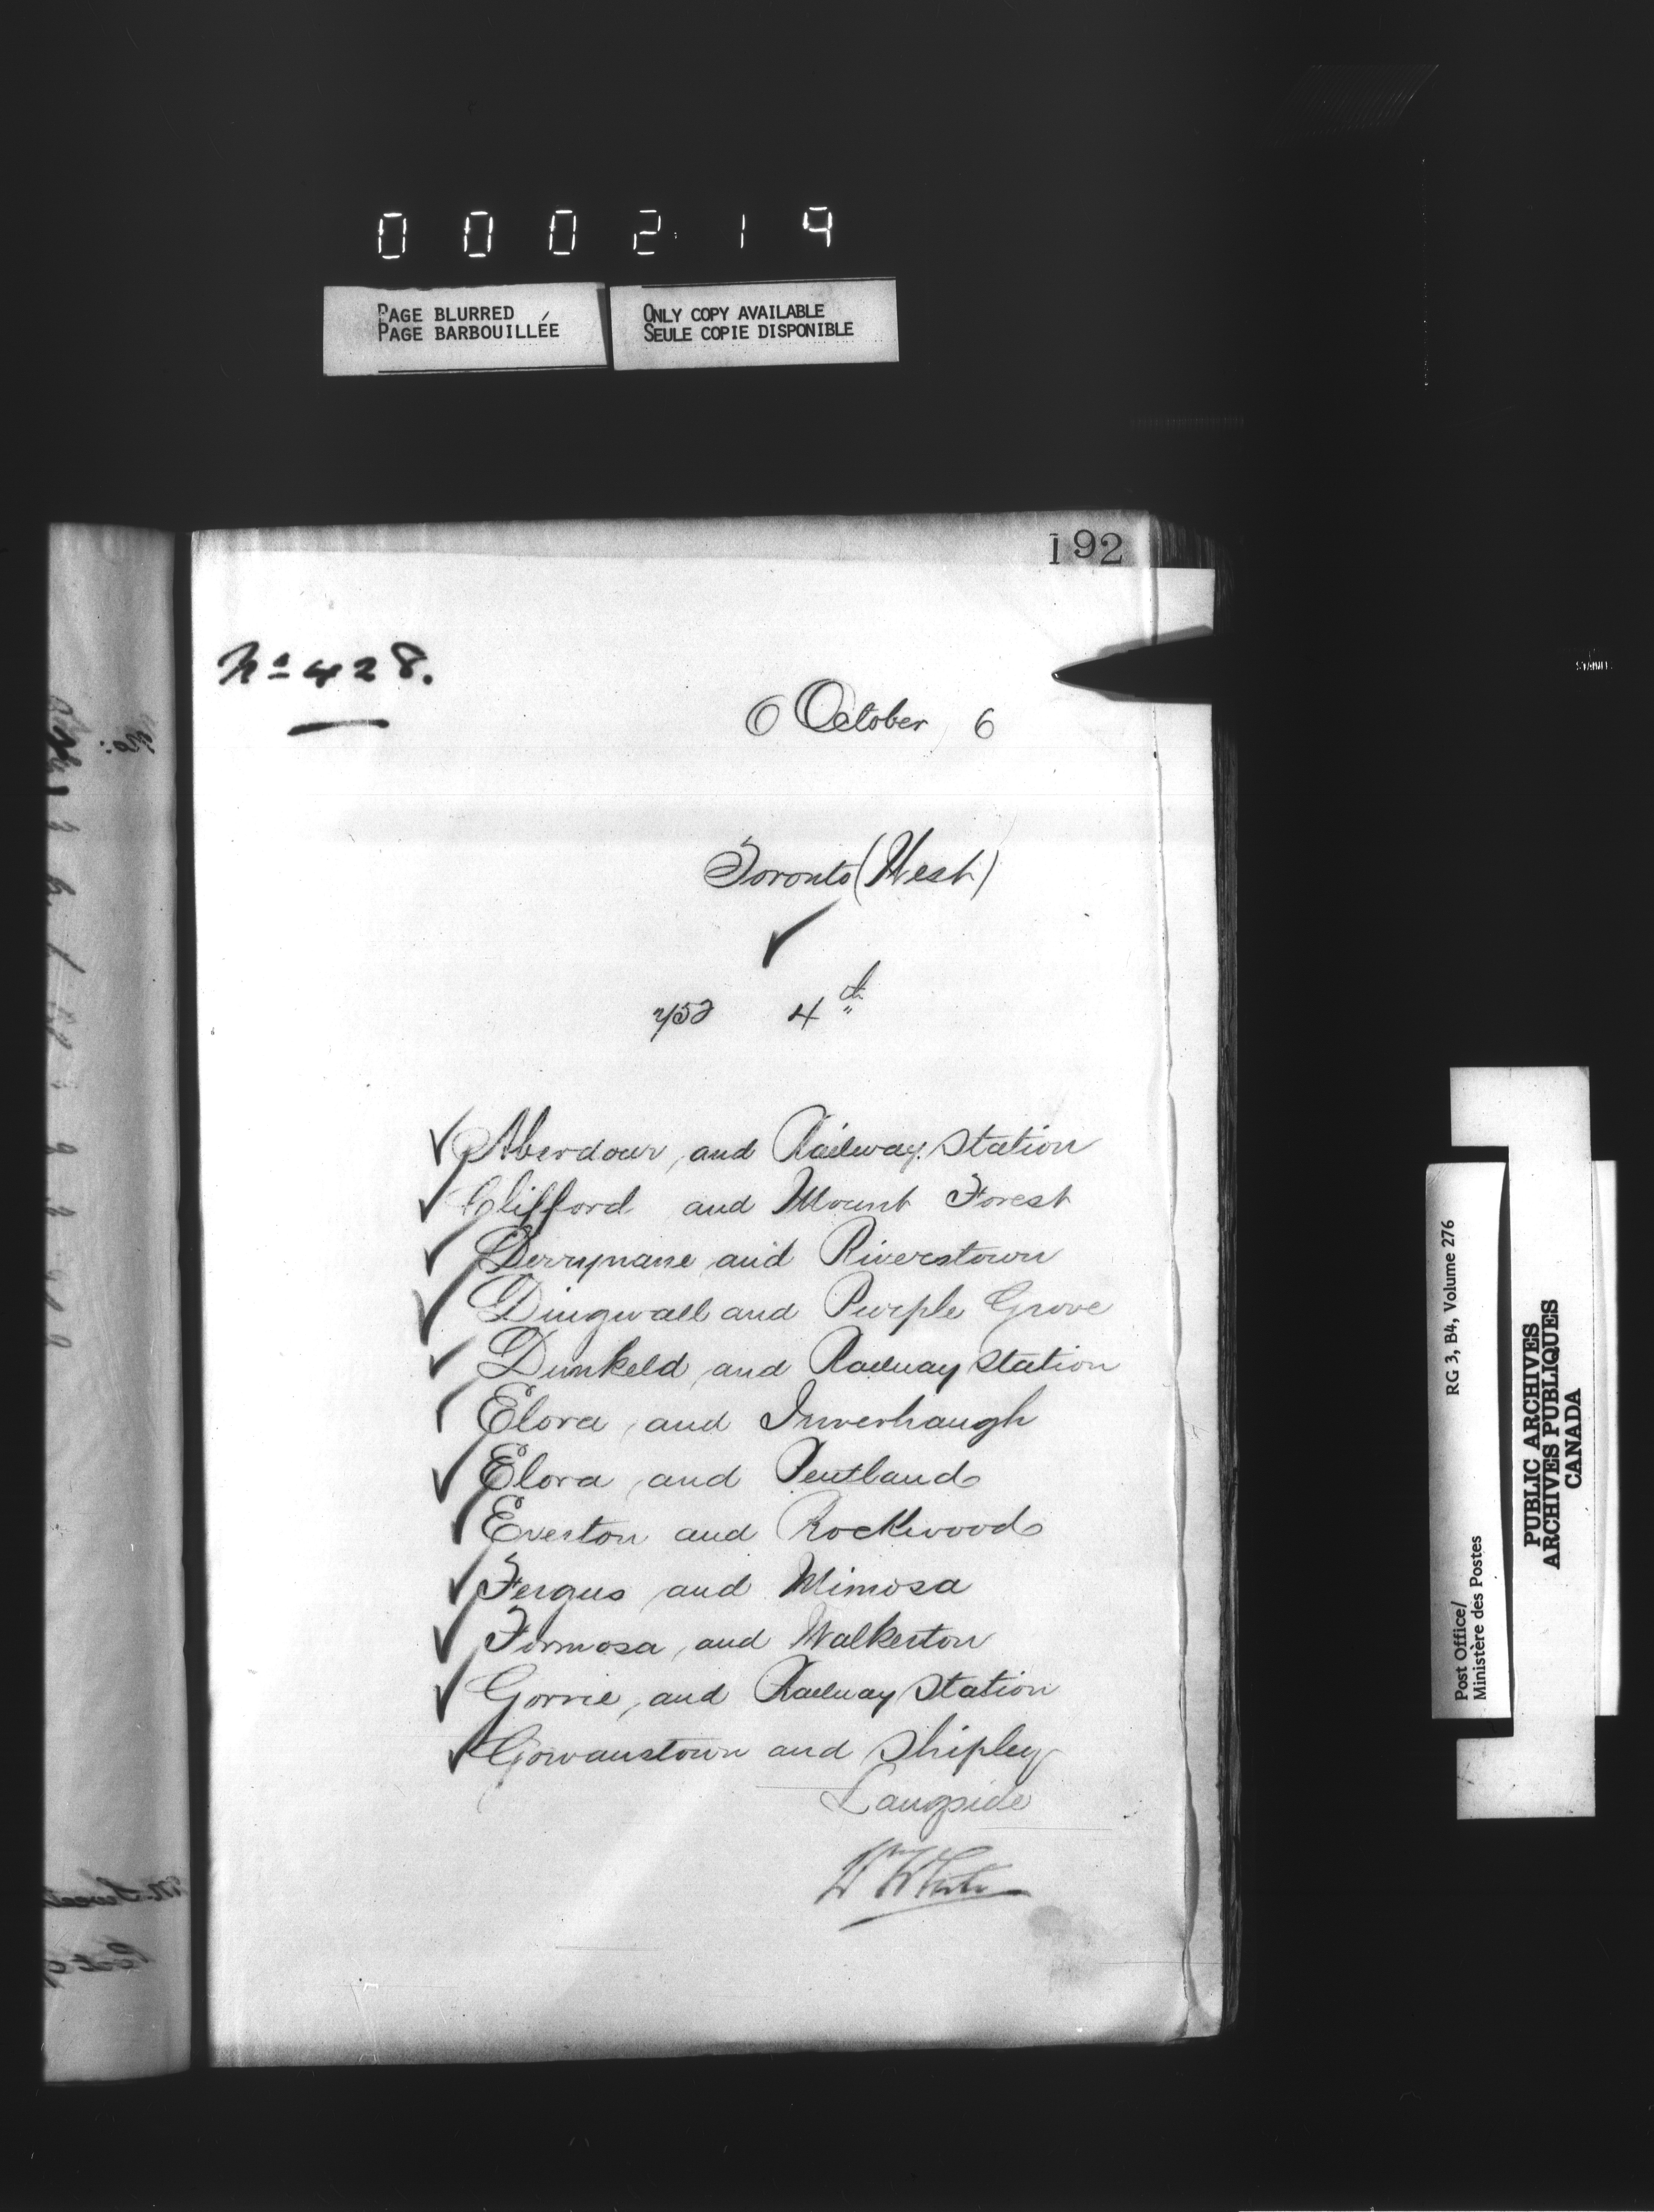 000219
PAGE BLURRED
PAGE BARBOUILLÉE
ONLY COPY AVAILABLE
SEULE COPIE DISPONIBLE
192
No 428.
6 October, 6
Toronto (West)
753 4th
Aberdour, and Railway Station
Clifford and Mount Forest
Derrynane and Riverstown
Dingwall and Purple Grove
Dunkeld and Railway Station
Elora, and Inverhaugh
Elora, and Pentland
Everton and Rockwood
Fergus and Mimosa
Formosa, and Walkerton
Gorrie, and Railway Station
Gowanstown and Shipley
Langside
W White
RG 3, B4, Volume 276
Post Office/
Ministère des Postes
PUBLIC ARCHIVES
ARCHIVES PUBLIQUES
CANADA